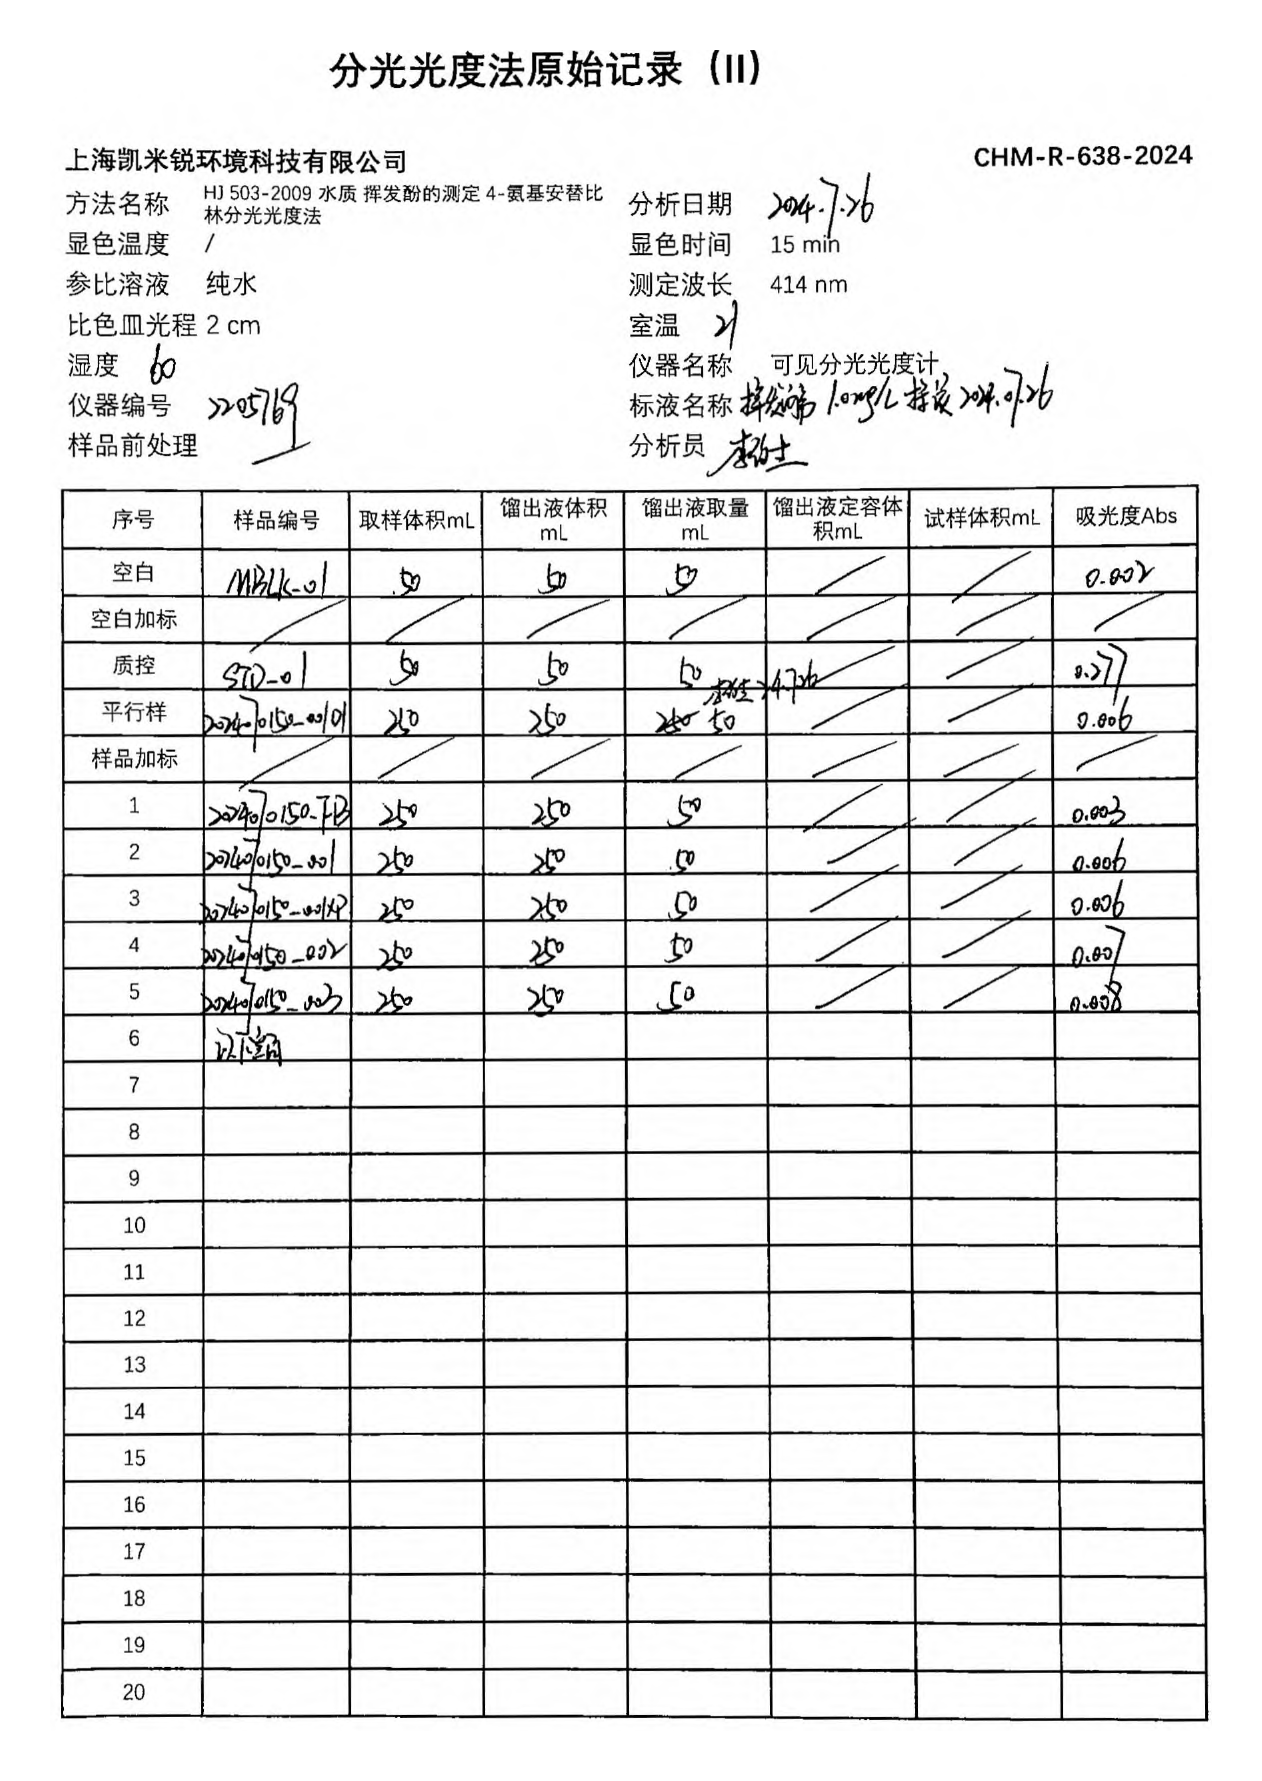 分光光度法原始记录（II）
上海凯米锐环境科技有限公司 CHM-R-638-2024
方法名称 HJ 503-2009 水质 挥发酚的测定 4-氨基安替比林分光光度法 分析日期 2024.7.26
显色温度 / 显色时间 15 min
参比溶液 纯水 测定波长 414 nm
比色皿光程 2 cm 室温 21
湿度 60 仪器名称 可见分光光度计
仪器编号 2205769 标液名称 挥发酚 1.0mg/L 2024.07.26
样品前处理 / 分析员
序号 样品编号 取样体积mL 馏出液体积mL 馏出液取量mL 馏出液定容体积mL 试样体积mL 吸光度Abs
空白 MBLK-01 50 50 50 / / 0.002
空白加标 / / / / / / /
质控 STD-01 50 50 50 / / 0.277
24.7.26
平行样 2024070150-001D1 250 250 250 50 / / 0.006
样品加标 / / / / / / /
1 2024070150-FB 250 250 50 / / 0.003
2 2024070150-001 250 250 50 / / 0.006
3 2024070150-001XP 250 250 50 / / 0.006
4 2024070150-002 250 250 50 / / 0.007
5 2024070150-003 250 250 50 / / 0.008
6 以下空白
7
8
9
10
11
12
13
14
15
16
17
18
19
20